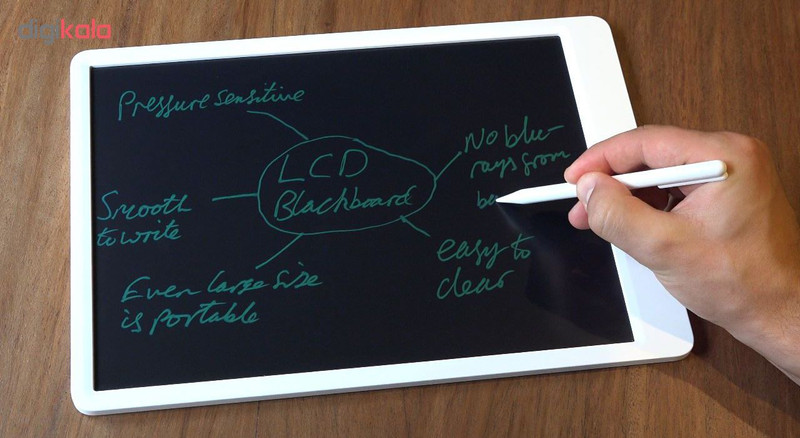 digikala
Pressure sensitive
LCD
Blackboard
No blu-
rays from
Smooth
to write
easy to
clear
Even large size
is portable